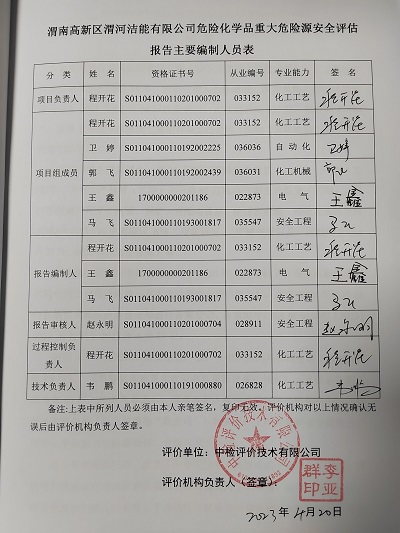 渭南高新区渭河洁能有限公司危险化学品重大危险源安全评估
报告主要编制人员表
分 类 姓 名 资格证书号 从业编号 专业能力 签 名
项目负责人 程开花 S011041000110201000702 033152 化工工艺 程开花
项目组成员 程开花 S011041000110201000702 033152 化工工艺 程开花
卫 婷 S011041000110192002225 036036 自 动 化 卫婷
郭 飞 S011041000110192002439 036031 化工机械 郭飞
王 鑫 1700000000201186 022873 电 气 王鑫
马 飞 S011041000110193001817 035547 安全工程 马飞
报告编制人 程开花 S011041000110201000702 033152 化工工艺 程开花
王 鑫 1700000000201186 022873 电 气 王鑫
马 飞 S011041000110193001817 035547 安全工程 马飞
报告审核人 赵永明 S011041000110201000704 028911 安全工程 赵永明
过程控制负责人 程开花 S011041000110201000702 033152 化工工艺 程开花
技术负责人 韦 鹏 S011041000110191000880 026828 化工工艺 韦鹏
备注:上表中所列人员必须由本人亲笔签名，复印无效。评价机构对以上情况确认无
误后由评价机构负责人签章。
评价单位：中检评价技术有限公司
评价机构负责人（签章）：
李亚群印
2023年4月20日